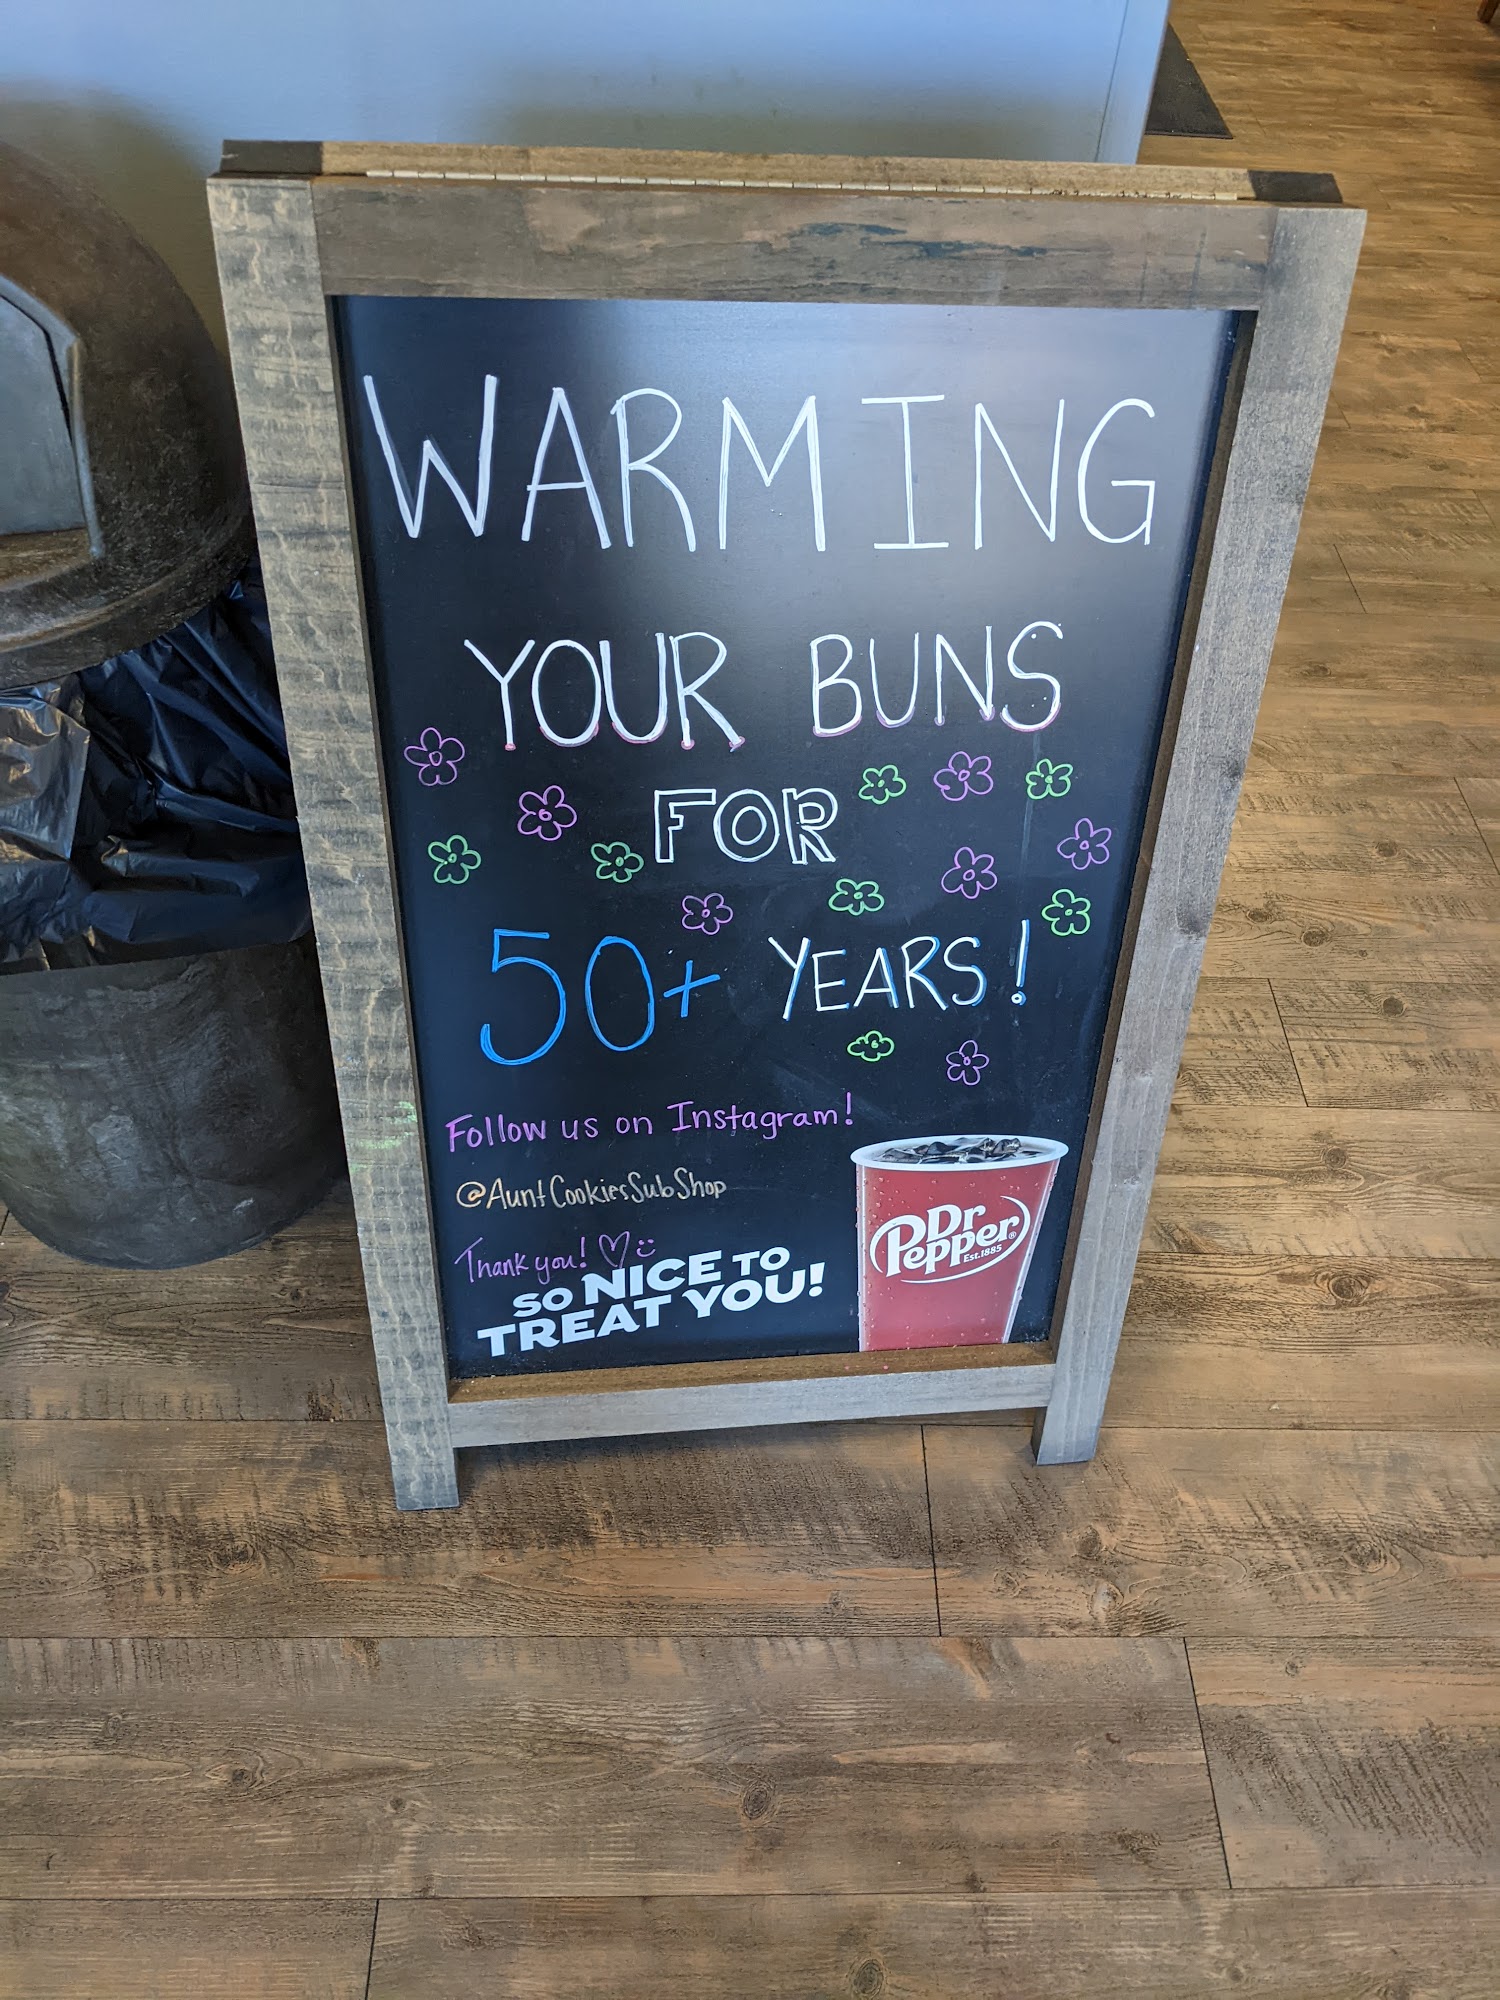 WARMING
YOUR BUNS
FOR
50+ YEARS!
Follow us on Instagram!
@AuntCookiesSubShop
Thank you!
SO NICE TO
TREAT YOU!
Dr
Pepper®
EST.1885